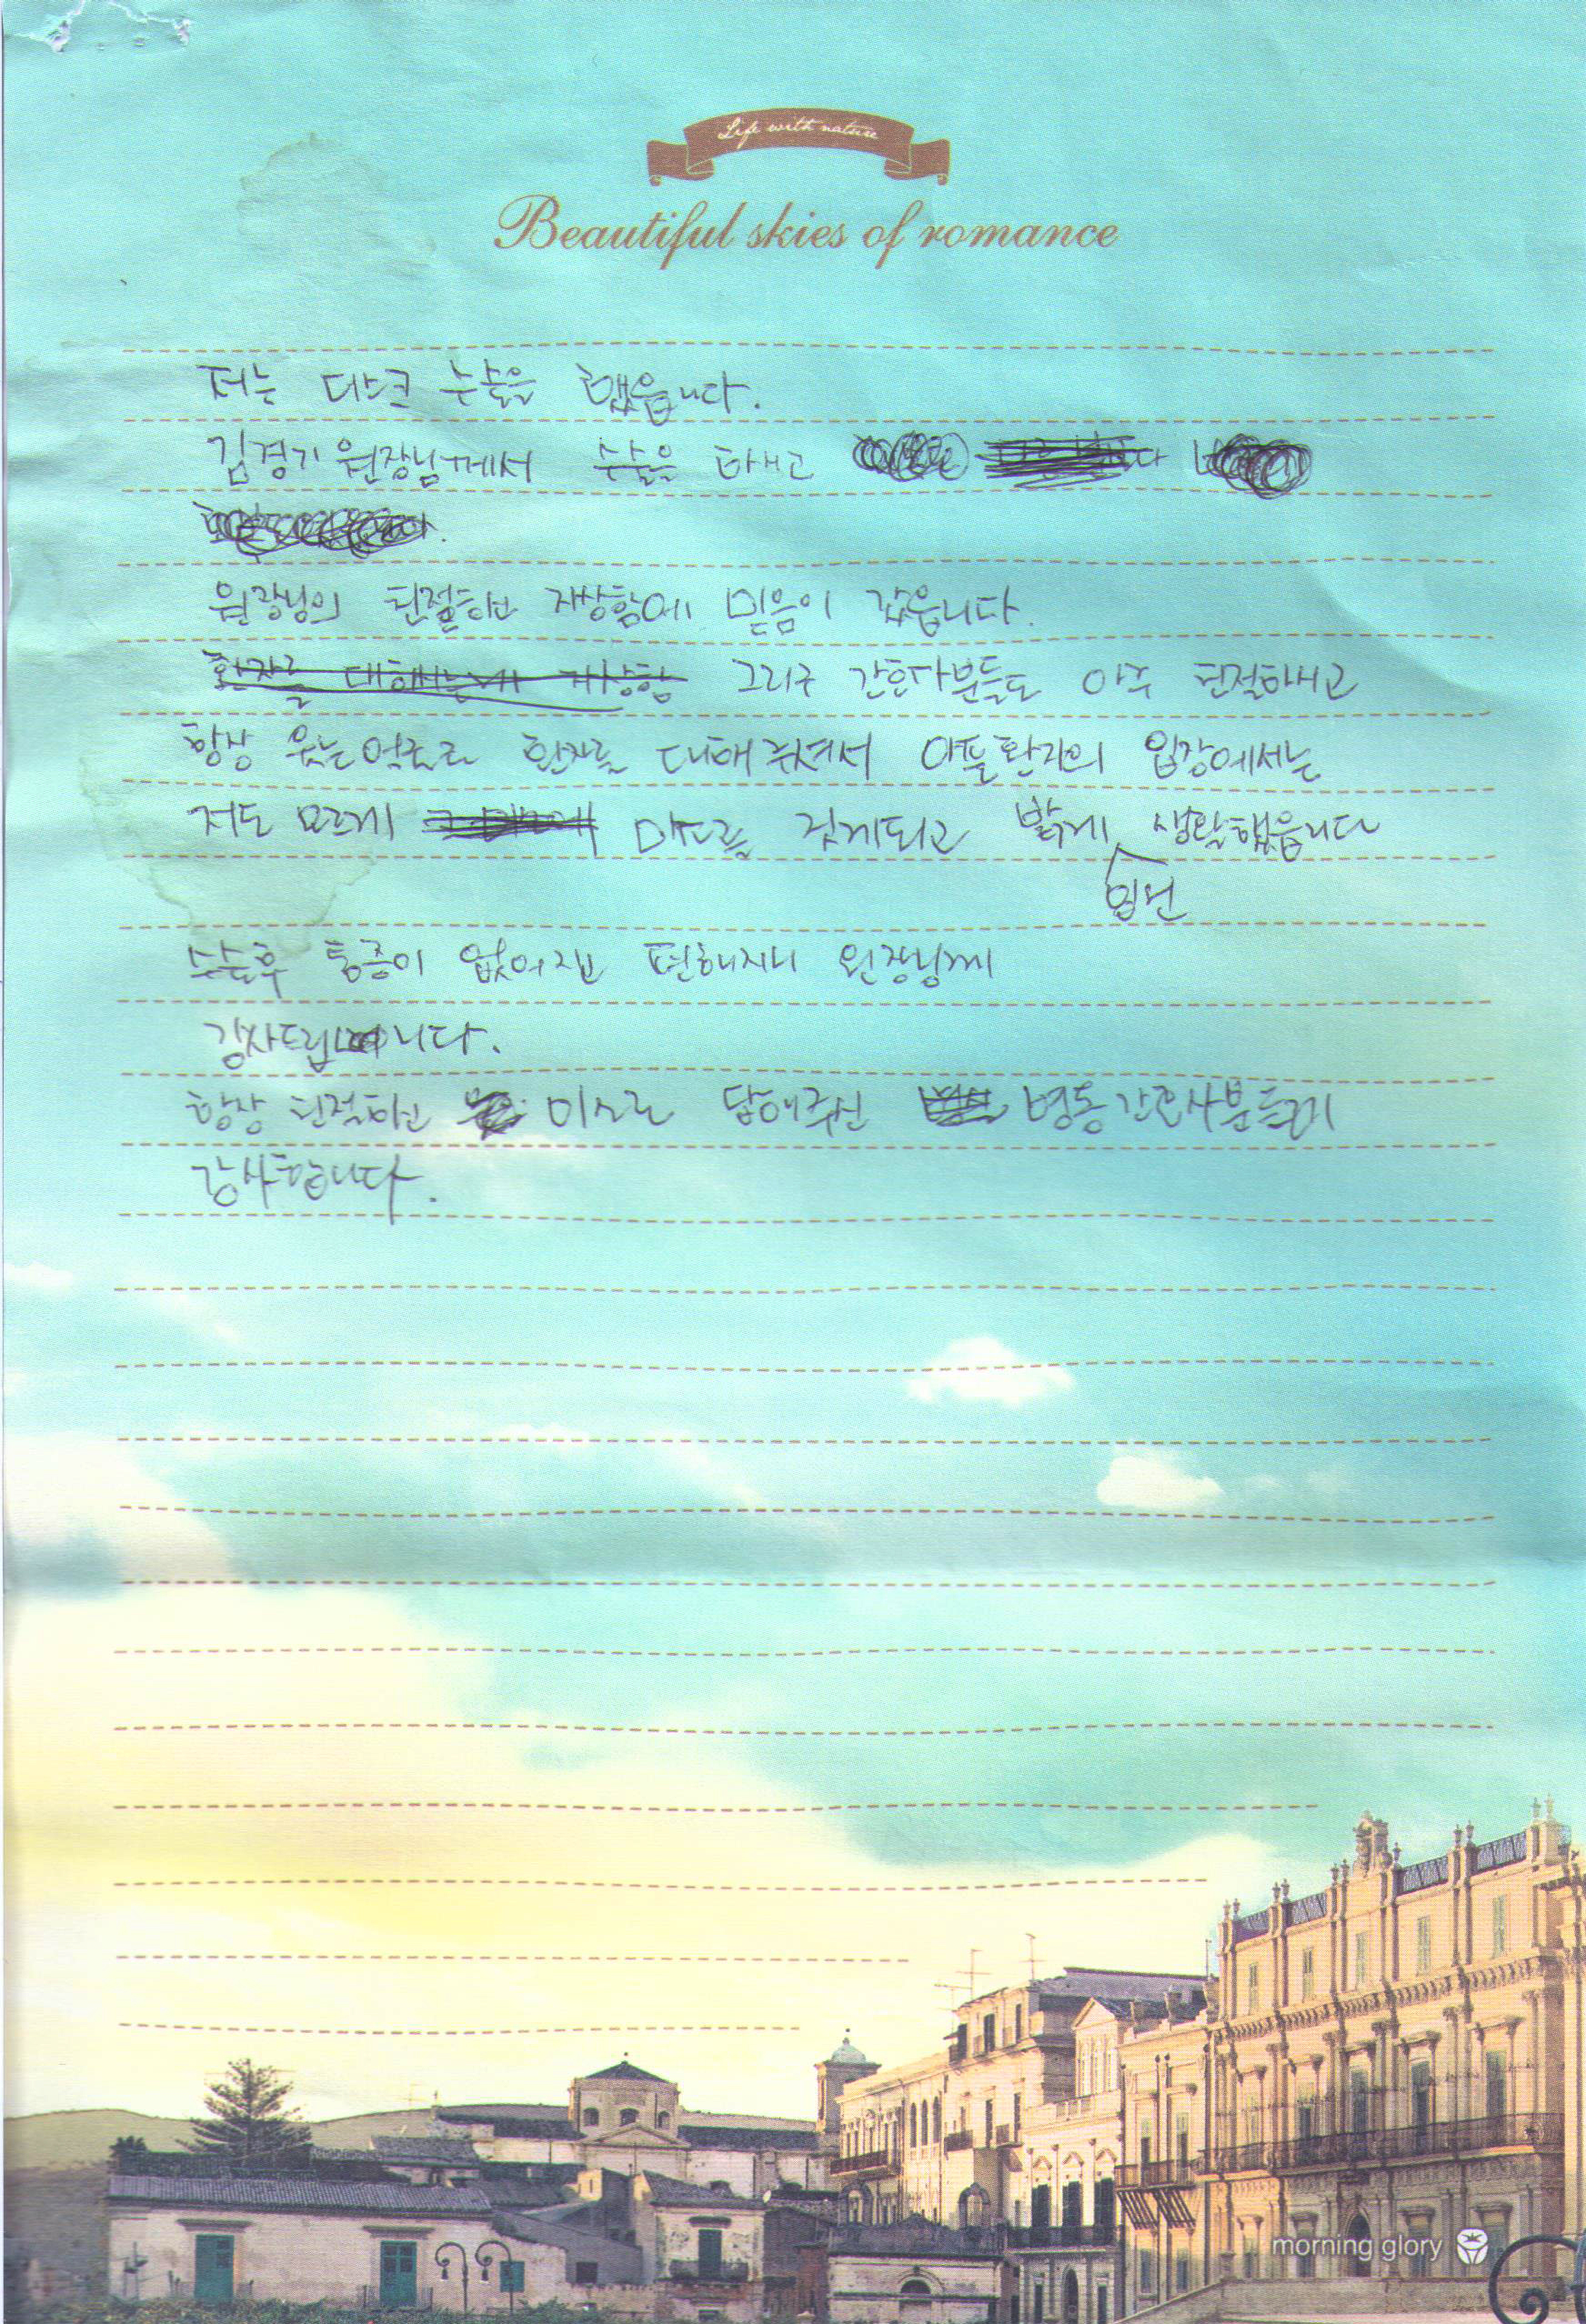 Life with nature
Beautiful skies of romance
저는 디스크 수술을 했읍니다.
김경기 원장님께서 수술을 하시고
원장님의 친절하고 자상함에 믿음이 갔읍니다.
환자를 대해시는게 자상함 그리구 간호사분들도 아주 친절하시고
항상 웃는얼굴로 환자를 대해주셔서 아픈환자의 입장에서는
저도 모르게 미소를 짓게되고 밝게 생활했읍니다
입원
수술후 통증이 없어지고 편해지니 원장님께
감사드립니다.
항상 친절하고 미소로 답해주신 병동간호사분들께
감사합니다.
morning glory